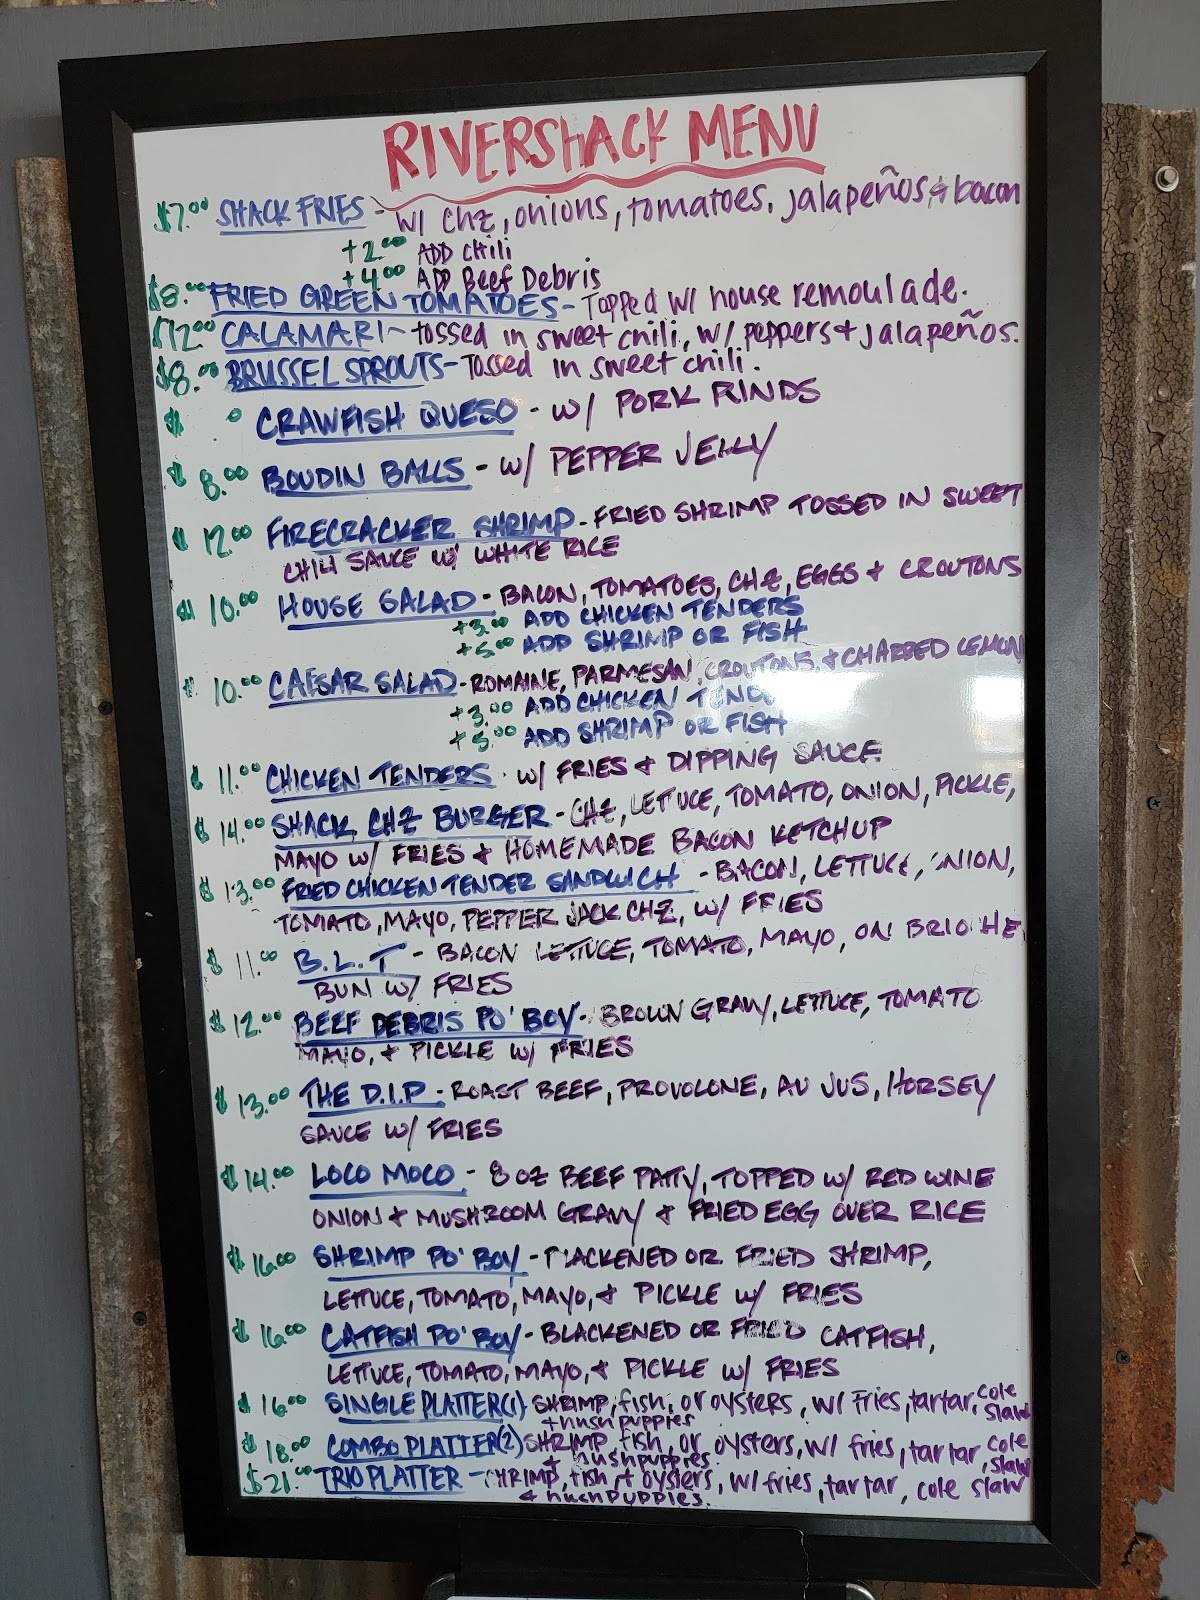 RIVERSHACK MENU
$7.00 SHACK FRIES - W/ CHZ, onions, tomatoes, jalapeños & bacon
+2.00 ADD Chili
+4.00 ADD Beef Debris
$8.00 FRIED GREEN TOMATOES - Topped W/ house remoulade.
$12.00 CALAMARI - tossed in sweet chili, w/ peppers + jalapeños.
$8.00 BRUSSEL SPROUTS - Tossed in sweet chili.
$ CRAWFISH QUESO - W/ PORK RINDS
$8.00 BOUDIN BALLS - W/ PEPPER JELLY
$12.00 FIRECRACKER SHRIMP - FRIED SHRIMP TOSSED IN SWEET
CHILI SAUCE W/ WHITE RICE
$10.00 HOUSE SALAD - BACON, TOMATOES, CHZ, EGGS + CROUTONS
+3.00 ADD CHICKEN TENDERS
+5.00 ADD SHRIMP OR FISH
$10.00 CAESAR SALAD - ROMAINE, PARMESAN, CROUTONS, + CHARRED LEMON
+3.00 ADD CHICKEN
+5.00 ADD SHRIMP OR FISH
$11.00 CHICKEN TENDERS - W/ FRIES + DIPPING SAUCE
$14.00 SHACK CHZ BURGER - CHZ, LETTUCE, TOMATO, ONION, PICKLE,
MAYO W/ FRIES + HOMEMADE BACON KETCHUP
$13.00 FRIED CHICKEN TENDER SANDWICH - BACON, LETTUCE, ONION,
TOMATO, MAYO, PEPPER JACK CHZ, W/ FRIES
$11.00 B.L.T - BACON LETTUCE, TOMATO, MAYO, ON BRIOCHE
BUN W/ FRIES
$12.00 BEEF DEBRIS PO'BOY - BROWN GRAVY, LETTUCE, TOMATO
MAYO, + PICKLE W/ FRIES
$13.00 THE D.I.P - ROAST BEEF, PROVOLONE, AU JUS, HORSEY
SAUCE W/ FRIES
$14.00 LOCO MOCO - 8 OZ BEEF PATTY, TOPPED W/ RED WINE
ONION + MUSHROOM GRAVY + FRIED EGG OVER RICE
$16.00 SHRIMP PO'BOY - BLACKENED OR FRIED SHRIMP,
LETTUCE, TOMATO, MAYO, + PICKLE W/ FRIES
$16.00 CATFISH PO'BOY - BLACKENED OR FRIED CATFISH,
LETTUCE, TOMATO, MAYO, + PICKLE W/ FRIES
$16.00 SINGLE PLATTER (1) SHRIMP, fish, or oysters, w/ Fries, tartar, cole slaw
+ hushpuppies
$18.00 COMBO PLATTER (2) SHRIMP, fish, or oysters, w/ fries, tartar, cole slaw
+ hushpuppies.
$21.00 TRIO PLATTER - SHRIMP, fish, + oysters, w/ fries, tartar, cole slaw
+ hushpuppies.